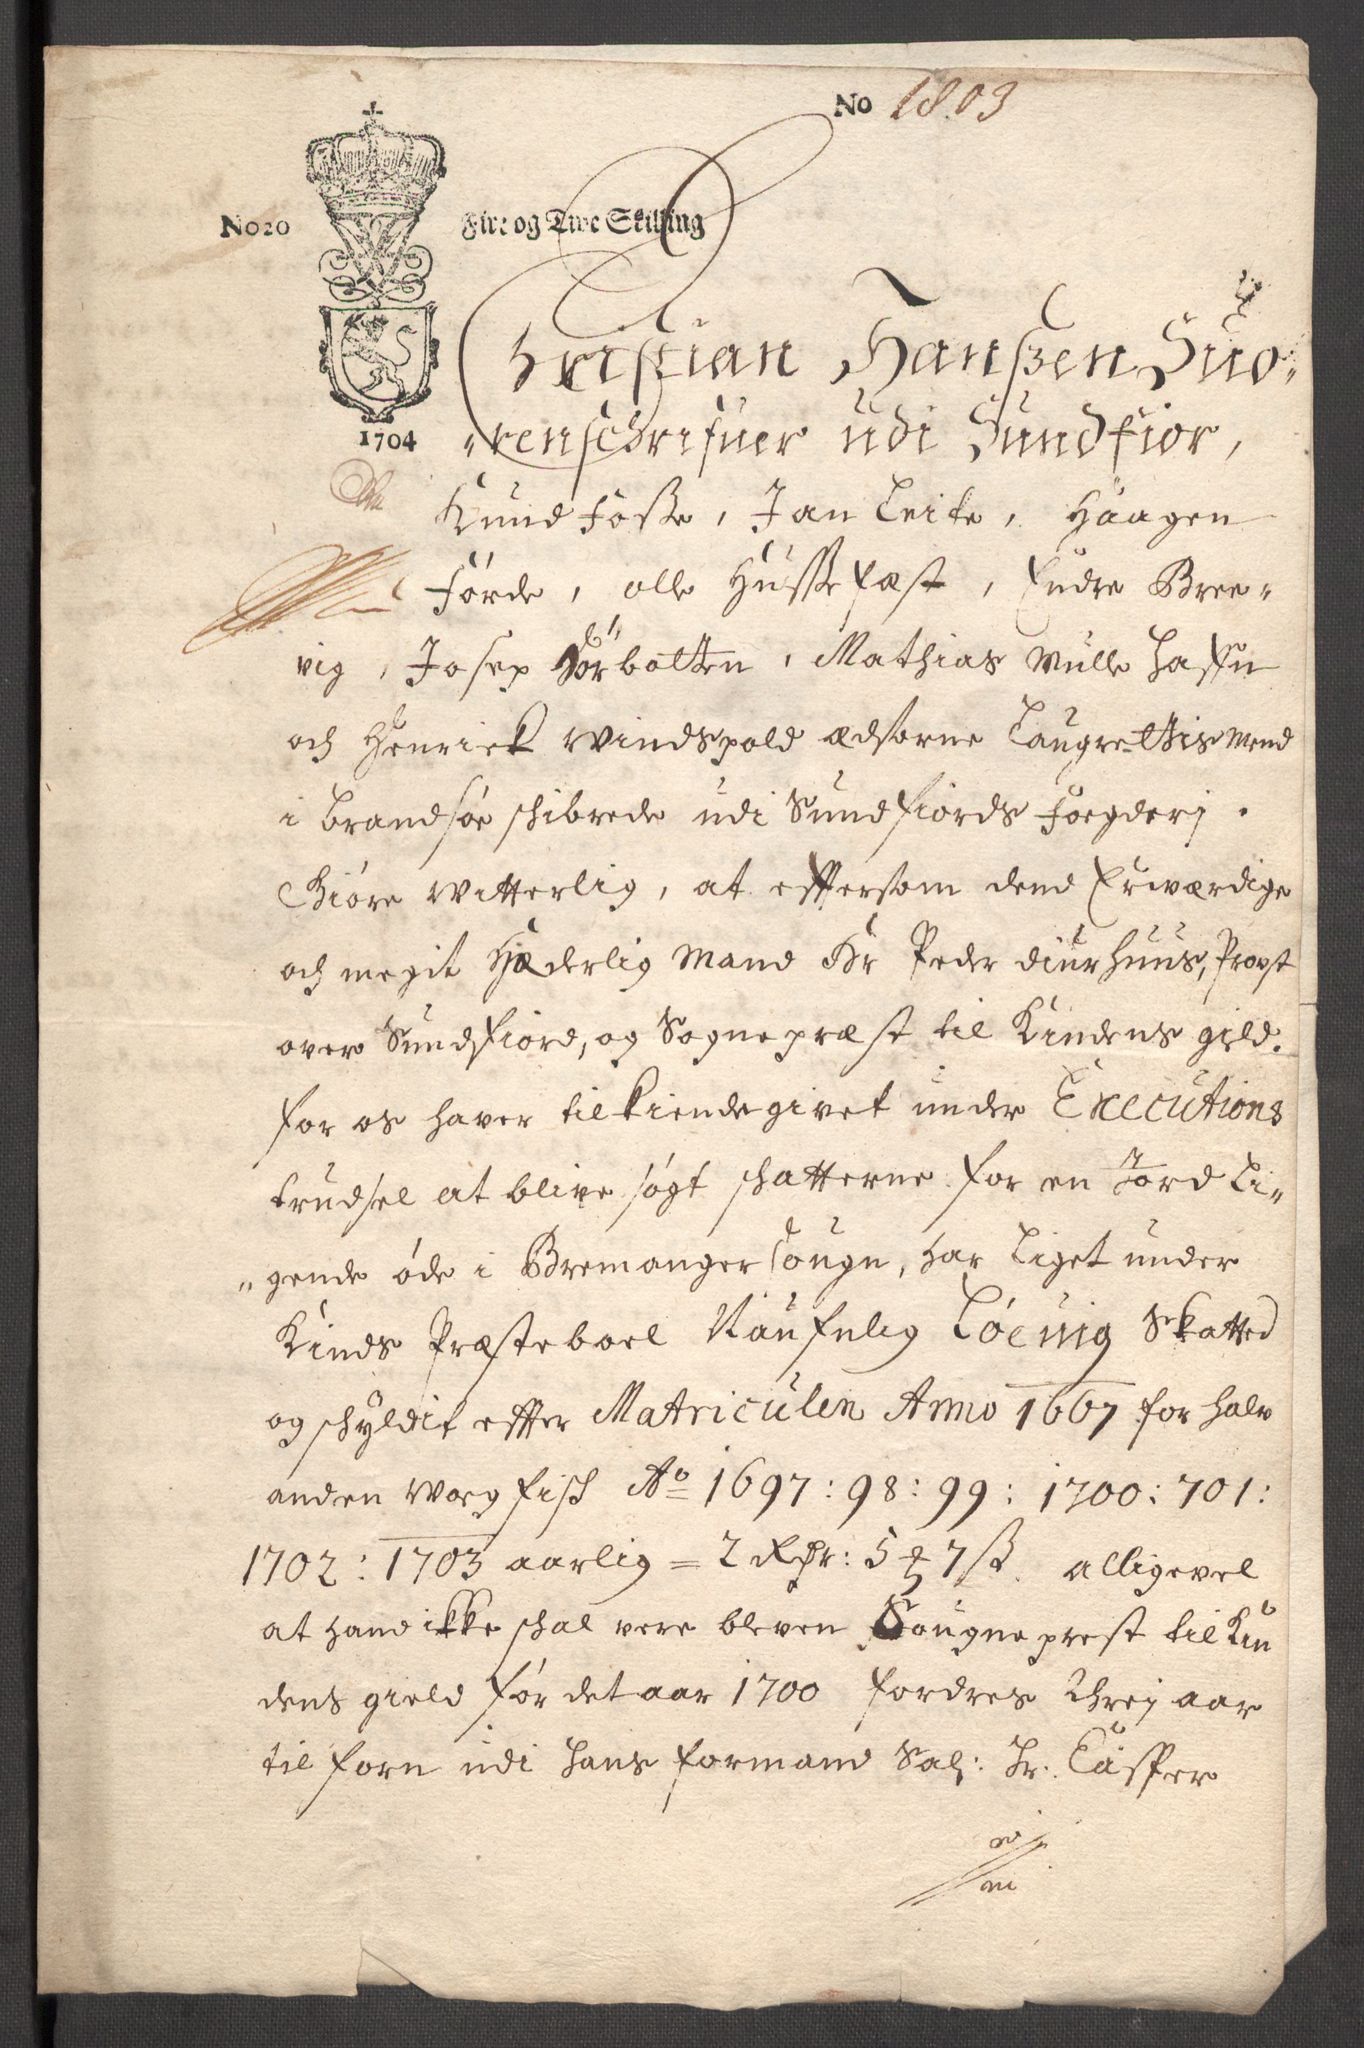 No 1803
No20 Fire og Tive Skilling
1704
Christian Hanßen Suo-
renschrifuer udi Sundfior,
Knud Foße, Jan Leite, Haagen
Førde, Olle Hussefæst, Endre Bree-
vig, Josep Hørbolten, Mathias Mulle hafn
och Henrick Windspold Edsorne Laugrettis Mend
i Brandsøe schibrede udi Sundfiords Foegderj.
Giøre Witterlig, at effersom dend Erwærdige
och megit Hæderlig Mand Hr Peder Diurhuus, Provst
over Sundfiord, og Sogneprest til Kindens gield.
for os haver tilkiende givet under Executions
trudsel at blive søgt schatterne for en Jord Li-
gende øde i Bremanger Sougn, har Liget under
Kinds Præsteboel Naufnlig Løevig Skatted
og schyldit effter Matriculen Anno 1667 for halv
anden Woeg fisch Ao 1697: 98: 99: 1700: 701:
1702: 1703 aarlig = 2 Rdr: 5 7 ß. alligevel
at hand ikke schal vere bleven Sougneprest til Kin
dens gield før det aar 1700 fordres threj aar
til forn udi hans formand Sal: Hr. Casper